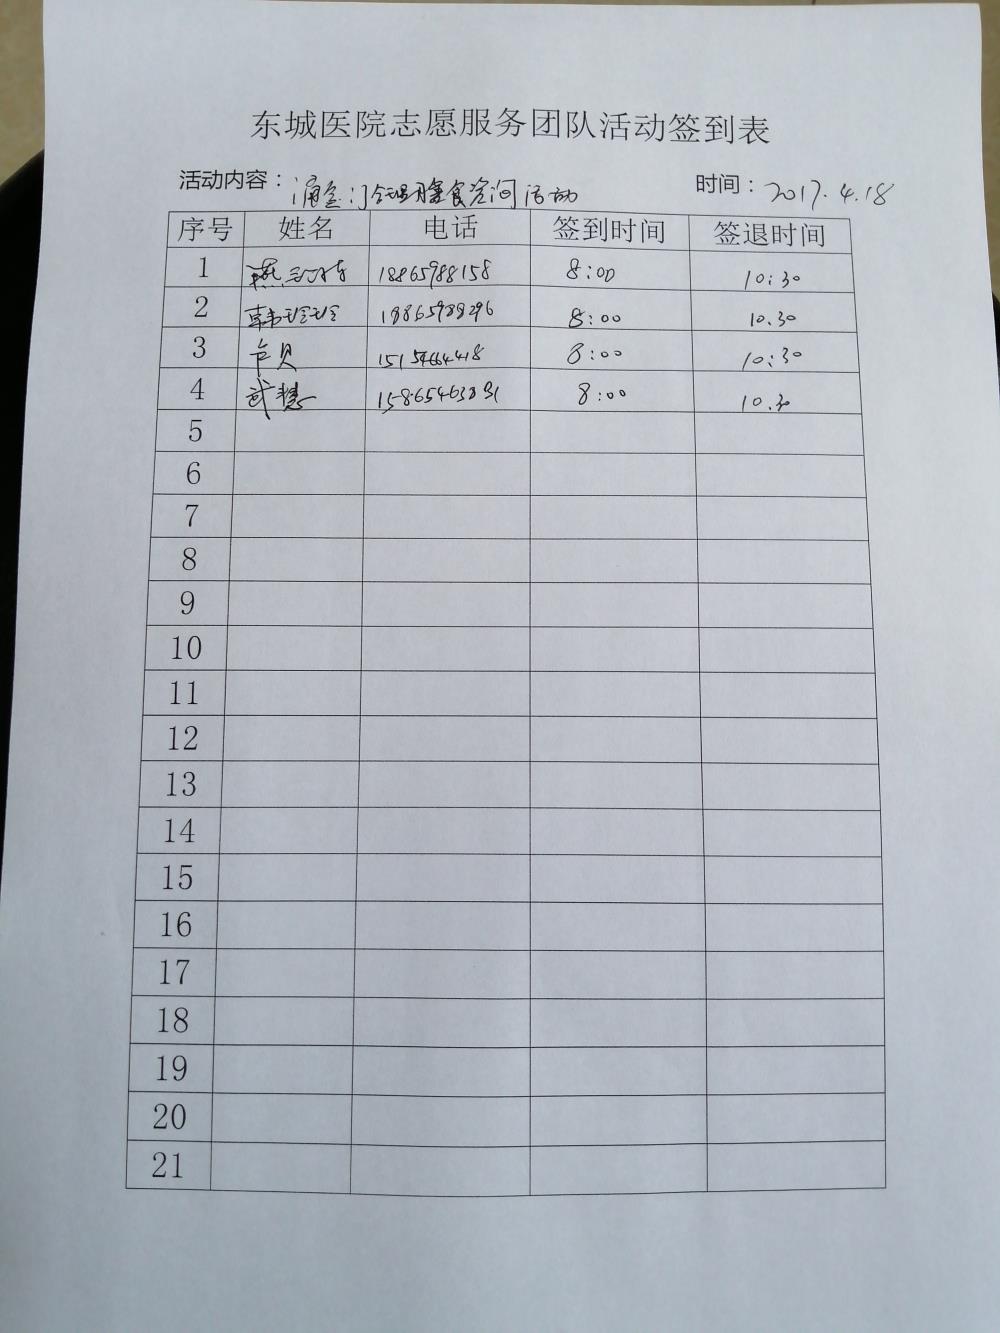 东城医院志愿服务团队活动签到表
活动内容： 合理膳食咨询活动 时间： 2017.4.18
序号 姓名 电话 签到时间 签退时间
1 燕 18865988158 8:00 10:30
2 韩玲玲 18865988296 8:00 10.30
3 卞贝 8:00 10:30
4 武慧 8:00 10.30
5
6
7
8
9
10
11
12
13
14
15
16
17
18
19
20
21